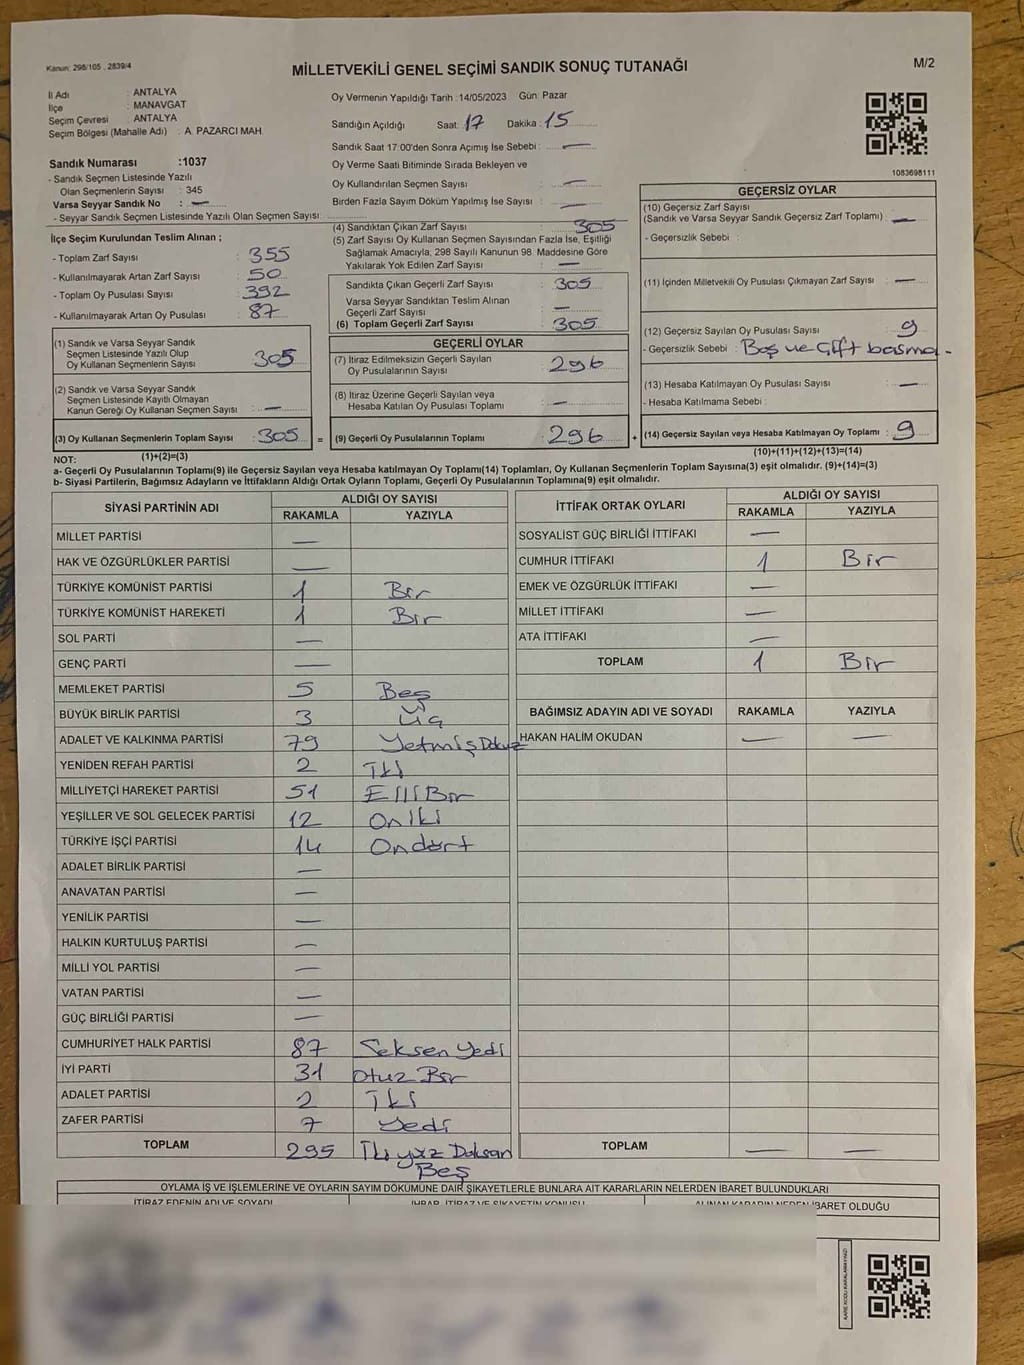 Kanun: 298/105 , 2839/4
MİLLETVEKİLİ GENEL SEÇİMİ SANDIK SONUÇ TUTANAĞI
M/2
İl Adı : ANTALYA
İlçe : MANAVGAT
Seçim Çevresi : ANTALYA
Seçim Bölgesi (Mahalle Adı) : A. PAZARCI MAH.
Oy Vermenin Yapıldığı Tarih :14/05/2023 Gün: Pazar
Sandığın Açıldığı Saat: 17 Dakika : 15
Sandık Saat 17:00'den Sonra Açımış İse Sebebi : —
Oy Verme Saati Bitiminde Sırada Bekleyen ve
Oy Kullandırılan Seçmen Sayısı —
Birden Fazla Sayım Döküm Yapılmış İse Sayısı : —
1083698111
Sandık Numarası :1037
- Sandık Seçmen Listesinde Yazılı
Olan Seçmenlerin Sayısı : 345
Varsa Seyyar Sandık No : —
- Seyyar Sandık Seçmen Listesinde Yazılı Olan Seçmen Sayısı:
İlçe Seçim Kurulundan Teslim Alınan ;
- Toplam Zarf Sayısı : 355
- Kullanılmayarak Artan Zarf Sayısı : 50
- Toplam Oy Pusulası Sayısı : 392
- Kullanılmayarak Artan Oy Pusulası : 87
(1) Sandık ve Varsa Seyyar Sandık
Seçmen Listesinde Yazılı Olup
Oy Kullanan Seçmenlerin Sayısı : 305
(2) Sandık ve Varsa Seyyar Sandık
Seçmen Listesinde Kayıtlı Olmayan
Kanun Gereği Oy Kullanan Seçmen Sayısı : —
(3) Oy Kullanan Seçmenlerin Toplam Sayısı : 305 =
(1)+(2)=(3)
(4) Sandıktan Çıkan Zarf Sayısı : 305
(5) Zarf Sayısı Oy Kullanan Seçmen Sayısından Fazla İse, Eşitliği
Sağlamak Amacıyla, 298 Sayılı Kanunun 98. Maddesine Göre
Yakılarak Yok Edilen Zarf Sayısı : —
Sandıkta Çıkan Geçerli Zarf Sayısı : 305
Varsa Seyyar Sandıktan Teslim Alınan
Geçerli Zarf Sayısı : —
(6) Toplam Geçerli Zarf Sayısı : 305
GEÇERLİ OYLAR
(7) İtiraz Edilmeksizin Geçerli Sayılan
Oy Pusulalarının Sayısı : 296
(8) İtiraz Üzerine Geçerli Sayılan veya
Hesaba Katılan Oy Pusulası Toplamı : —
(9) Geçerli Oy Pusulalarının Toplamı : 296 +
GEÇERSİZ OYLAR
(10) Geçersiz Zarf Sayısı
(Sandık ve Varsa Seyyar Sandık Geçersiz Zarf Toplamı) : —
- Geçersizlik Sebebi :
(11) İçinden Milletvekili Oy Pusulası Çıkmayan Zarf Sayısı : —
(12) Geçersiz Sayılan Oy Pusulası Sayısı : 9
- Geçersizlik Sebebi : Boş ve çift basma.
(13) Hesaba Katılmayan Oy Pusulası Sayısı : —
- Hesaba Katılmama Sebebi :
(14) Geçersiz Sayılan veya Hesaba Katılmayan Oy Toplamı : 9
(10)+(11)+(12)+(13)=(14)
NOT:
a- Geçerli Oy Pusulalarının Toplamı(9) ile Geçersiz Sayılan veya Hesaba katılmayan Oy Toplamı(14) Toplamları, Oy Kullanan Seçmenlerin Toplam Sayısına(3) eşit olmalıdır. (9)+(14)=(3)
b- Siyasi Partilerin, Bağımsız Adayların ve İttifakların Aldığı Ortak Oyların Toplamı, Geçerli Oy Pusulalarının Toplamına(9) eşit olmalıdır.
SİYASİ PARTİNİN ADI ALDIĞI OY SAYISI
RAKAMLA YAZIYLA
MİLLET PARTİSİ —
HAK VE ÖZGÜRLÜKLER PARTİSİ —
TÜRKİYE KOMÜNİST PARTİSİ 1 Bir
TÜRKİYE KOMÜNİST HAREKETİ 1 Bir
SOL PARTİ —
GENÇ PARTİ —
MEMLEKET PARTİSİ 5 Beş
BÜYÜK BİRLİK PARTİSİ 3 Üç
ADALET VE KALKINMA PARTİSİ 79 Yetmiş Dokuz
YENİDEN REFAH PARTİSİ 2 İki
MİLLİYETÇİ HAREKET PARTİSİ 51 Elli Bir
YEŞİLLER VE SOL GELECEK PARTİSİ 12 On iki
TÜRKİYE İŞÇİ PARTİSİ 14 Ondört
ADALET BİRLİK PARTİSİ —
ANAVATAN PARTİSİ —
YENİLİK PARTİSİ —
HALKIN KURTULUŞ PARTİSİ —
MİLLİ YOL PARTİSİ —
VATAN PARTİSİ —
GÜÇ BİRLİĞİ PARTİSİ —
CUMHURİYET HALK PARTİSİ 87 Seksen Yedi
İYİ PARTİ 31 Otuz Bir
ADALET PARTİSİ 2 İki
ZAFER PARTİSİ 7 Yedi
TOPLAM 295 İki yüz Doksan
Beş
İTTİFAK ORTAK OYLARI ALDIĞI OY SAYISI
RAKAMLA YAZIYLA
SOSYALİST GÜÇ BİRLİĞİ İTTİFAKI —
CUMHUR İTTİFAKI 1 Bir
EMEK VE ÖZGÜRLÜK İTTİFAKI —
MİLLET İTTİFAKI —
ATA İTTİFAKI —
TOPLAM 1 Bir
BAĞIMSIZ ADAYIN ADI VE SOYADI RAKAMLA YAZIYLA
HAKAN HALİM OKUDAN — —
TOPLAM — —
OYLAMA İŞ VE İŞLEMLERİNE VE OYLARIN SAYIM DÖKÜMÜNE DAİR ŞİKAYETLERLE BUNLARA AİT KARARLARIN NELERDEN İBARET BULUNDUKLARI
İTİRAZ EDENİN ADI VE SOYADI İHBAR, İTİRAZ VE ŞİKAYETİN KONUSU ALINAN KARARIN NEDEN İBARET OLDUĞU
KARE KODU KARALAMAYINIZ!